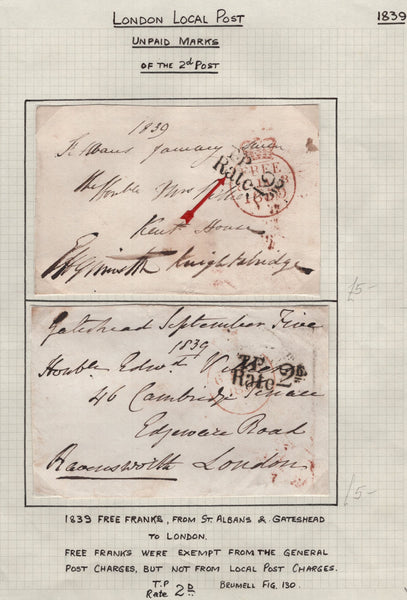 LONDON LOCAL POST
1839
UNPAID MARKS
OF THE 2d POST
1839
St Albans January
The Honble Mrs
T.P.
Rate 2
FREE
1839
Kent House
Knightsbridge
/5-
Gateshead September Five
1839
Honble Edwd
T.P.
Rate 2d
46 Cambridge Terrace
Edgeware Road
Ravensworth London
/5-
1839 FREE FRANKS, FROM ST. ALBANS & GATESHEAD
TO LONDON.
FREE FRANKS WERE EXEMPT FROM THE GENERAL
POST CHARGES, BUT NOT FROM LOCAL POST CHARGES.
T.P
Rate 2D
BRUMELL FIG. 130.